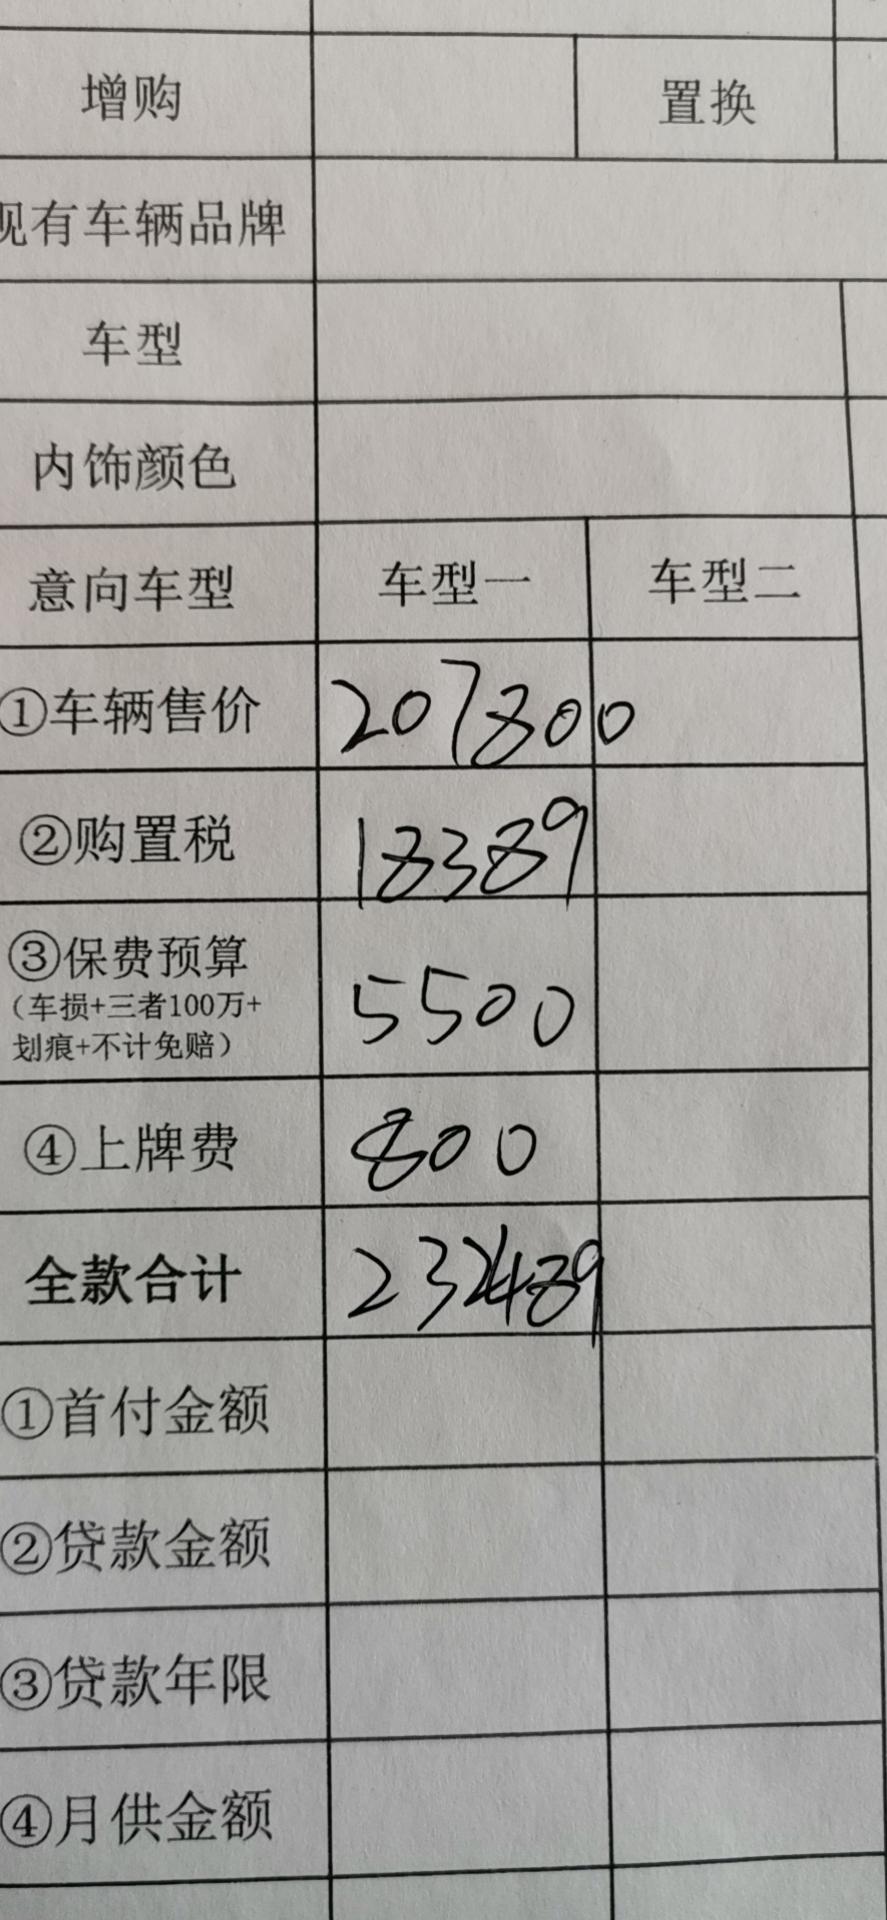 增购 置换
现有车辆品牌
车型
内饰颜色
意向车型 车型一 车型二
①车辆售价 207800
②购置税 18389
③保费预算 5500
（车损+三者100万+
划痕+不计免赔）
④上牌费 800
全款合计 232489
①首付金额
②贷款金额
③贷款年限
④月供金额